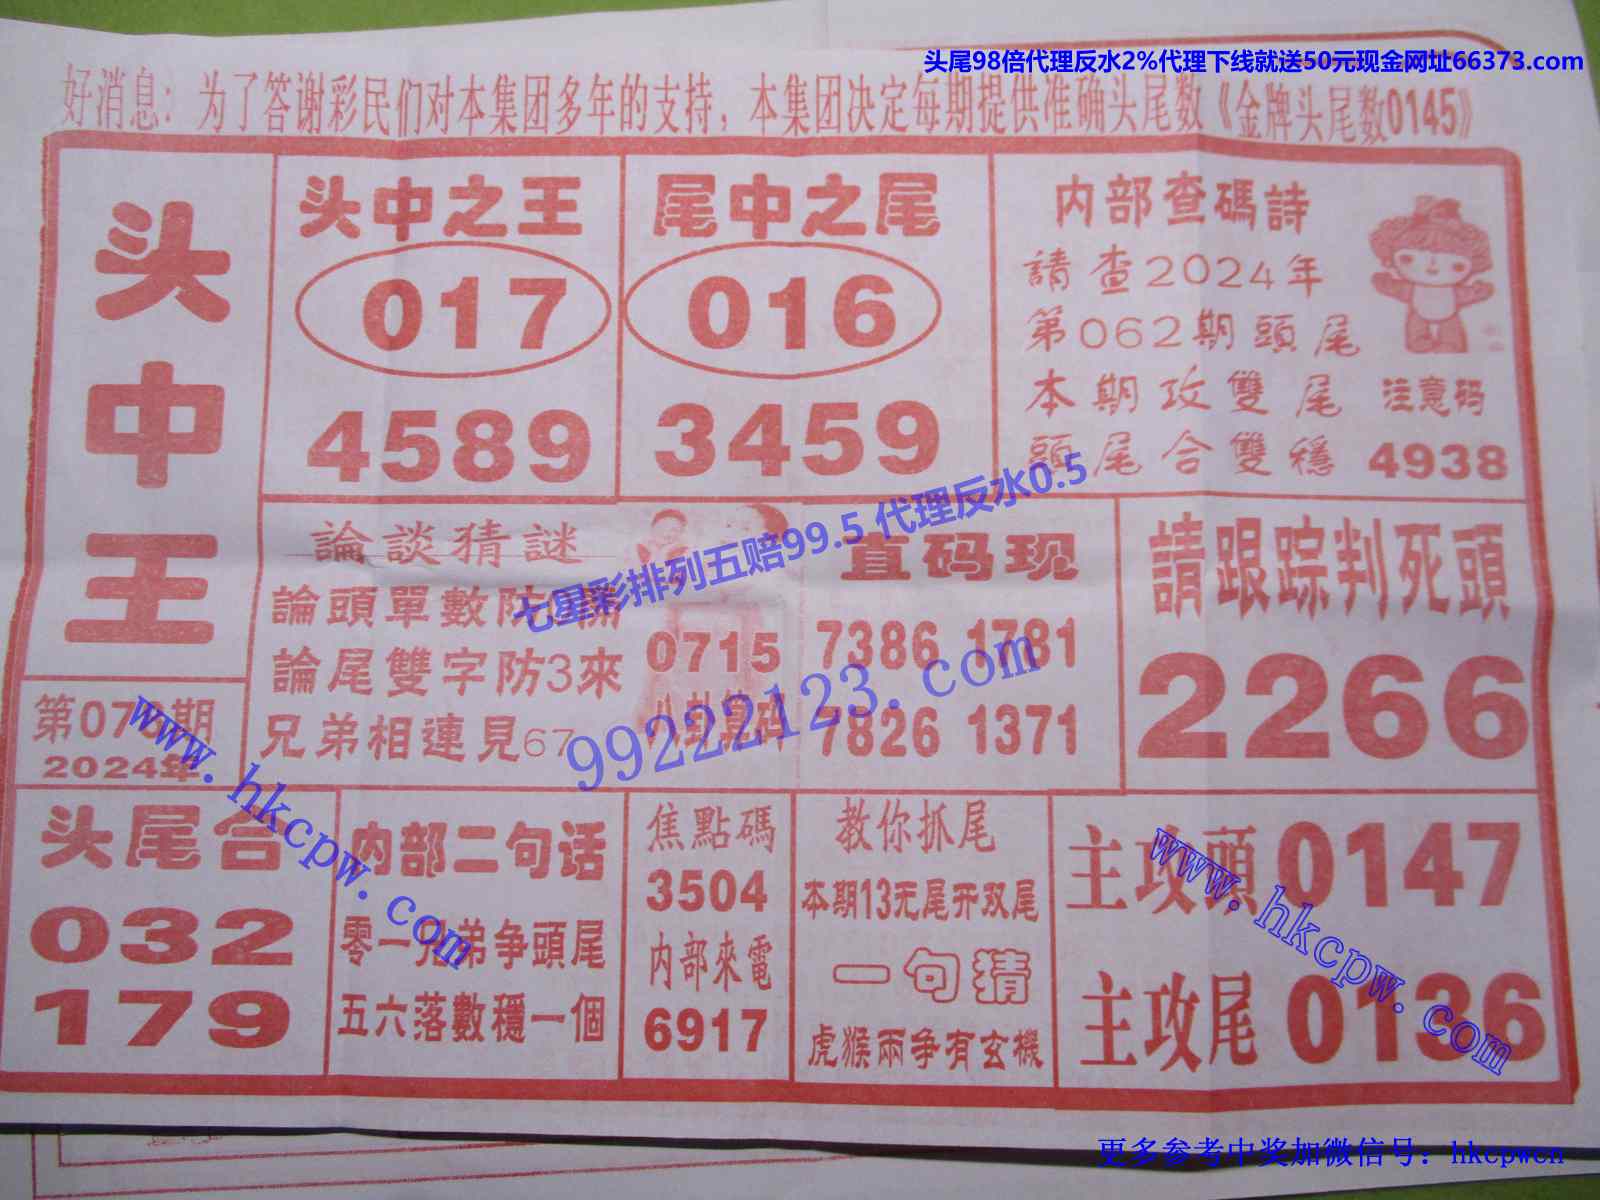 头尾98倍代理反水2%代理下线就送50元现金网址66373.com
好消息：为了答谢彩民们对本集团多年的支持，本集团决定每期提供准确头尾数《金牌头尾数0145》
头中王
第07期
2024年
头中之王
017
4589
尾中之尾
016
3459
内部查碼詩
請查2024年
第062期頭尾
本期攻雙尾
頭尾合雙穩
注意码
4938
論談猜謎
論頭單數防
論尾雙字防3來
兄弟相連見67
0715
八卦算码
直码现
7386 1781
7826 1371
請跟踪判死頭
2266
七星彩排列五赔99.5 代理反水0.5
99222123.com
www.hkcpw.com
头尾合
032
179
内部二句话
零一兄弟争頭尾
五六落數穩一個
焦點碼
3504
内部來電
6917
教你抓尾
本期13无尾开双尾
一句猜
虎猴兩争有玄機
主攻頭0147
主攻尾0136
www.hkcpw.com
更多参考中奖加微信号：hkcpwcn